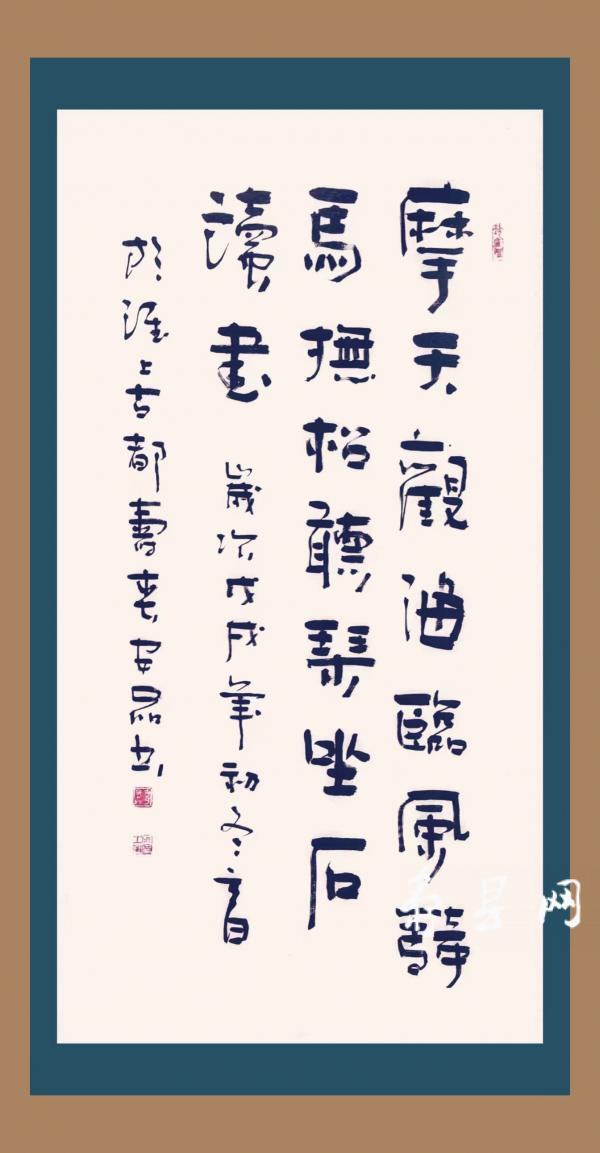 摩天觀海臨風騎
馬撫松聽琴坐石
讀書 歲次戊戌年初冬
於淮上古都壽春書
寿县网